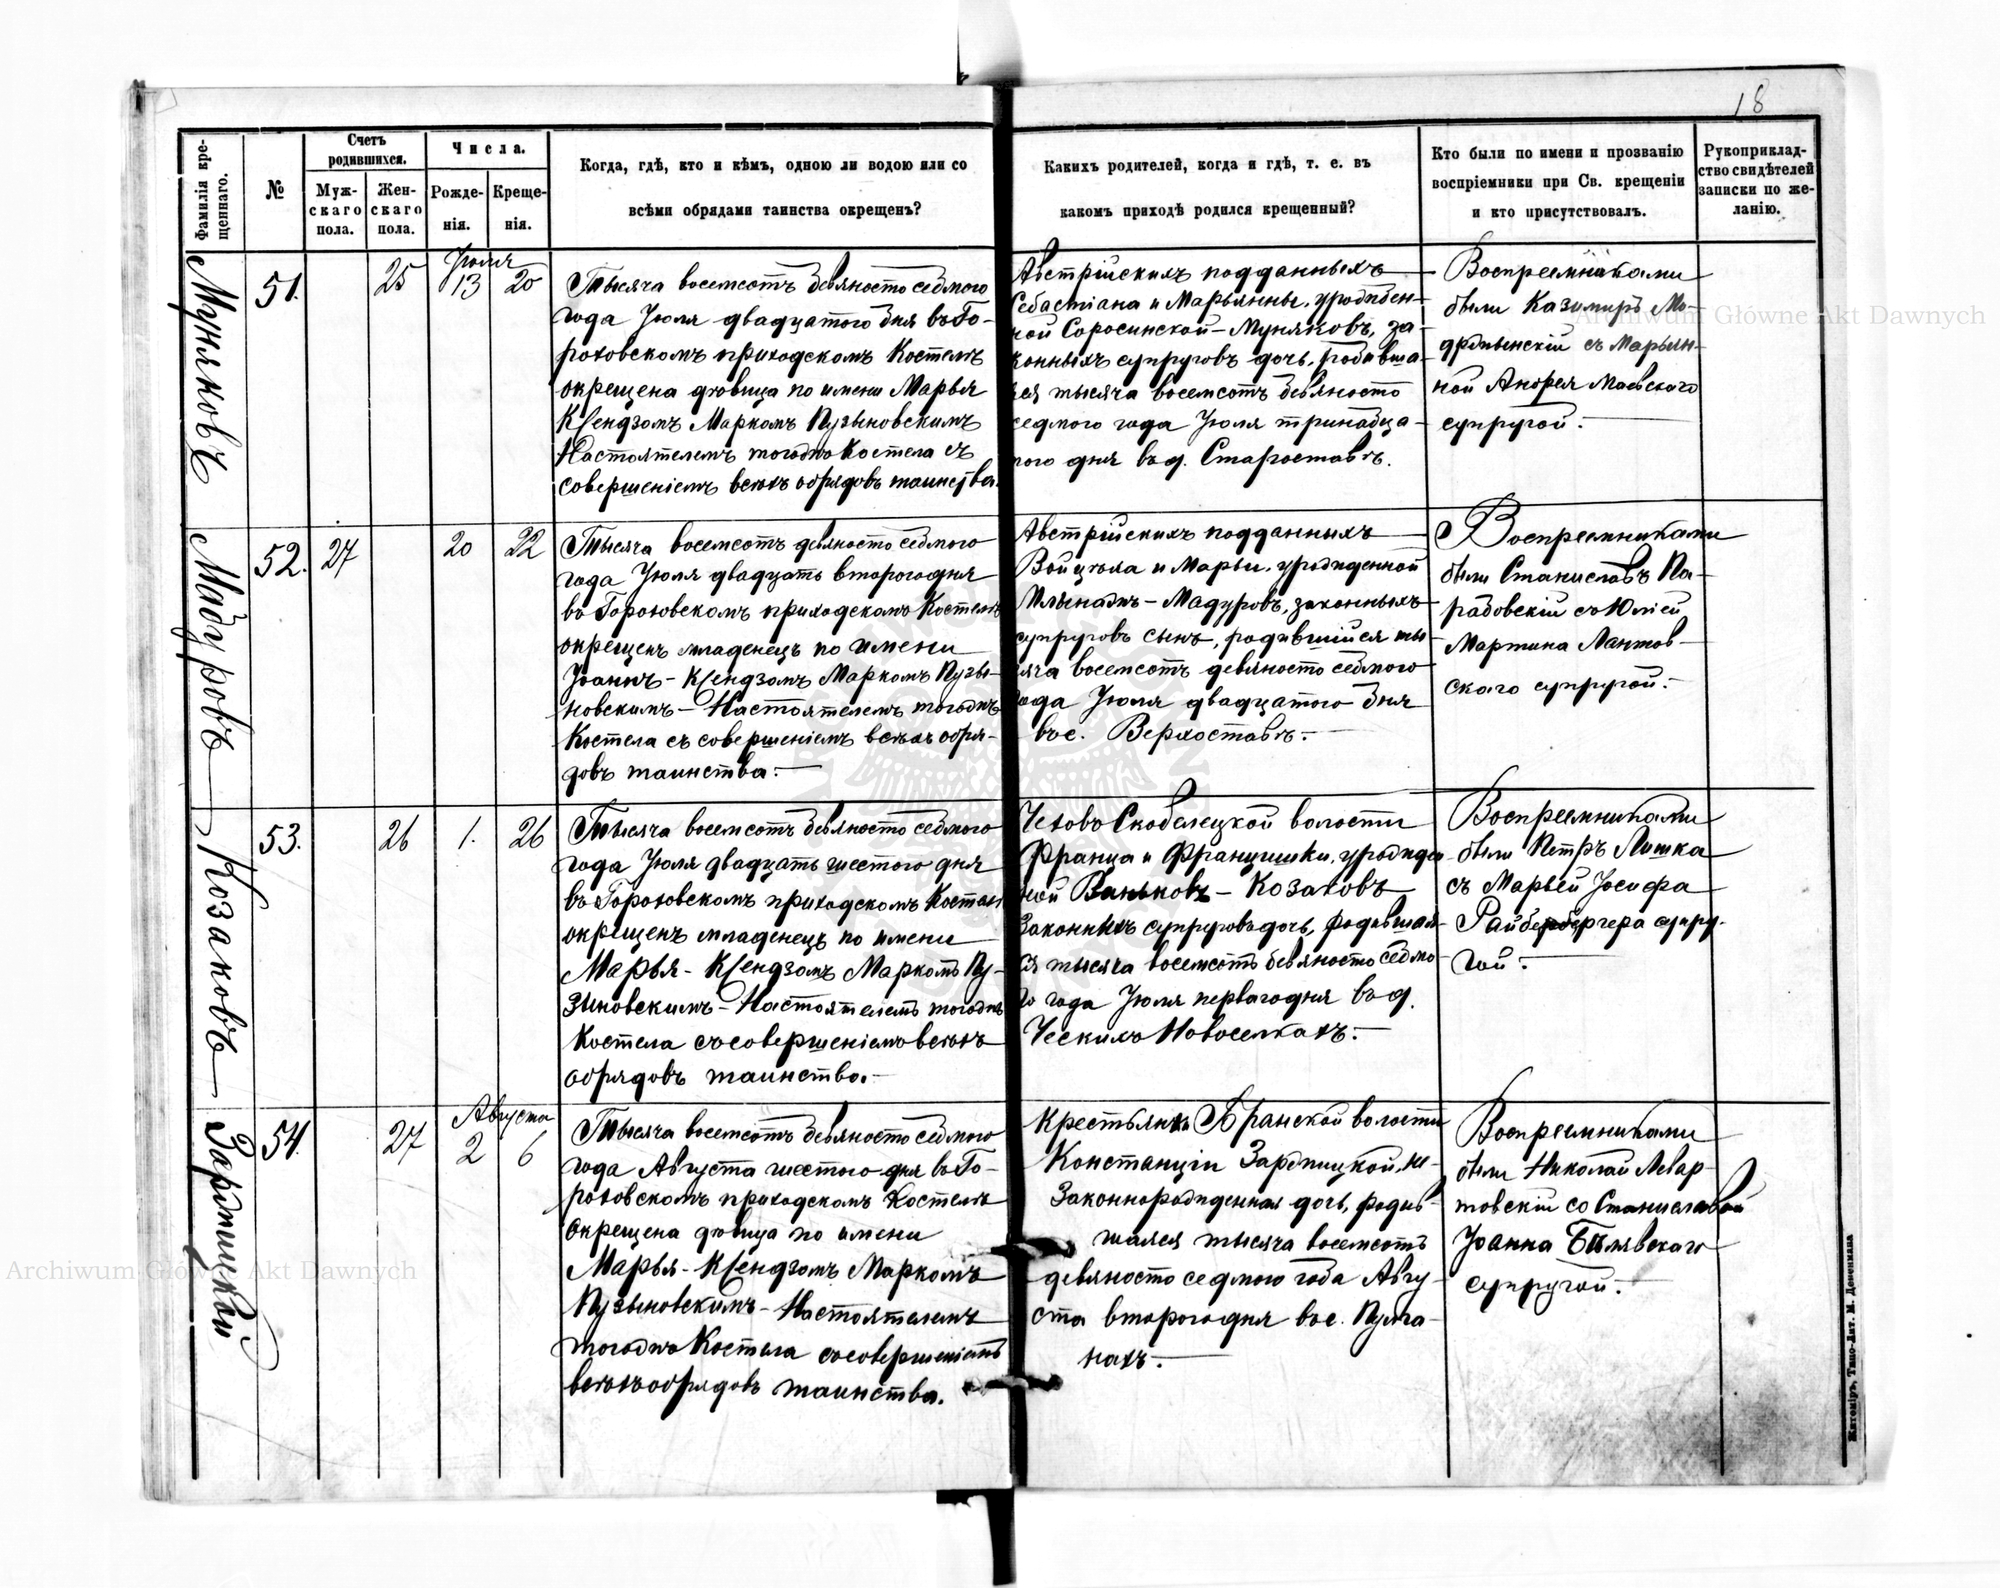 18
Фамилія кре-
щеннаго.
№
Счетъ
родившихся.
Муж-
скаго
пола.
Жен-
скаго
пола.
Числа.
Рожде-
нія.
Креще-
нія.
Когда, гдѣ, кто и кѣмъ, одною ли водою или со
всѣми обрядами таинства окрещенъ?
Какихъ родителей, когда и гдѣ, т. е. въ
какомъ приходѣ родился крещенный?
Кто были по имени и прозванію
воспріемники при Св. крещеніи
и кто присутствовалъ.
Рукоприклад-
ство свидѣтелей
записки по же-
ланію.
Муняковъ
51.
25
Іюля
13
20
Тысяча восемсотъ девяносто седмого
года Іюля двадцатого дня въ Го-
роховскомъ приходскомъ Костелѣ
окрещена дѣвица по имени Марья
Ксендзомъ Маркомъ Пузыновскимъ
Настоятелемъ тогодже Костела съ
совершеніемъ всѣхъ обрядовъ таинства.
Австрійскихъ подданныхъ
Себастіана и Марьянны, урожден-
ной Соросинской – Муняковъ, за-
конныхъ супруговъ дочь, родивша-
яся тысяча восемсотъ девяносто
седмого года Іюля тринадца-
того дня въ д. Староставѣ.
Воспреемниками
были Казимиръ Мо-
држынскій съ Марьян-
ной Андрея Маевского
супругой.
Мадуровъ
52.
27
20
22
Тысяча восемсотъ девяносто седмого
года Іюля двадцать второго дня
въ Гороховскомъ приходскомъ Костелѣ
окрещенъ младенецъ по имени
Іоаннъ – Ксендзомъ Маркомъ Пузы-
новскимъ – Настоятелемъ тогодже
Костела съ совершеніемъ всѣхъ обря-
довъ таинства.
Австрійскихъ подданныхъ
Войцѣха и Марьи, урожденной
– Мадуровъ, законныхъ
супруговъ сынъ, родившійся ты-
сяча восемсотъ девяносто седмого
года Іюля двадцатого дня
въ с. Верхоставѣ.
Воспреемниками
были Станиславъ Па-
радовскій съ Юліей
Мартина Лантов-
ского супругой.
Козаковъ
53.
26
1.
26
Тысяча восемсотъ девяносто седмого
года Іюля двадцать шестого дня
въ Гороховскомъ приходскомъ Костелѣ
окрещенъ младенецъ по имени
Марья – Ксендзомъ Маркомъ Пу-
зыновскимъ – Настоятелемъ тогодже
Костела съ совершеніемъ всѣхъ
обрядовъ таинства.
Чеховъ Скобелецкой волости
Франца и Францишки, урожден-
ной Ваньковъ – Козаковъ
законныхъ супруговъ дочь, родившая-
ся тысяча восемсотъ девяносто седмо-
го года Іюля перваго дня въ д.
Ческихъ Новоселкахъ.
Воспреемниками
были Петръ Лишка
съ Марьей Іосифа
Райбербергера супру-
гой.
Зарѣпицкой
54.
27
Августа
2
6
Тысяча восемсотъ девяносто седмого
года Августа шестого дня въ Го-
роховскомъ приходскомъ Костелѣ
окрещена дѣвица по имени
Марья – Ксендзомъ Маркомъ
Пузыновскимъ – Настоятелемъ
тогодже Костела съ совершеніемъ
всѣхъ обрядовъ таинства.
Крестьянки Бранской волости
Констанціи Зарѣпицкой, не-
законнорожденная дочь, родив-
шаяся тысяча восемсотъ
девяносто седмого года Авгу-
ста второго дня въ с. Пулга-
нахъ.
Воспреемниками
были Николай Левар-
товскій со Станиславой
Іоанна Бѣлявскаго
супругой.
Житоміръ, Типо-Лит. М. Дененмана
Archiwum Główne Akt Dawnych
Archiwum Główne Akt Dawnych